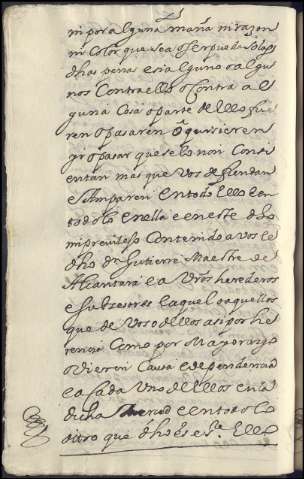 ni por alguna mana ni razon
ni Color que sea o ser pueda so las
dhas penas e si alguno o algu
nos Contra ello o Contra al
guna Cosa o parte de ello fue
ren o pasaren o quisieren
yr o pasar que se lo non Consi
entan mas que Vos defiendan
e Amparen en todo Ello e en
todo lo en ella e en este dho
mi previlejo Contenido a vos le
dho dn Gutierre Maestre de
Alcantara e a Vros herederos
e subzesores e aquel o aquellos
que de Vos o dellos asi por he
rencia Como por Mayorazgo
o Vieren Causa e de pender e
a Cada Uno de Ellos en la
dicha Merced e en todo lo
otro que dho es e Ello